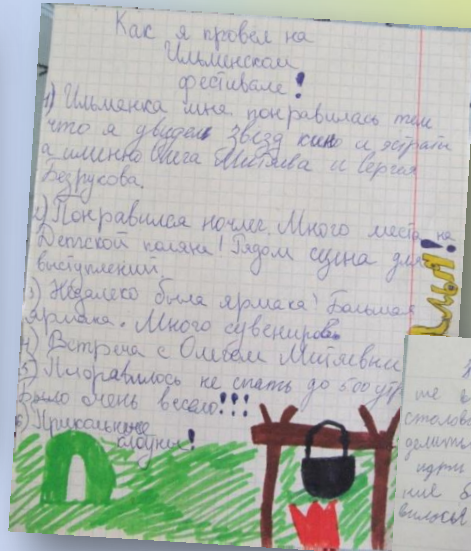 Как я провел на
Ильменском
фестивале!
1) Ильменка мне понравилась тем
что я увидел звезд кино и эстрады
а именно Олега Митяева и Сергея
Безрукова.
2) Понравился ночлег. Много места на
Детской поляне! Рядом сцена для
выступлений
3) Недалеко была ярмака! Большая
ярмака. Много сувениров
4) Встреча с Олегом Митяевым
5) Пнравилось не спать до 5 00 утр
было очень весело!!!
6) Прикольные
клоуны!
те
столово
делитьс
идти
ние б
вилось